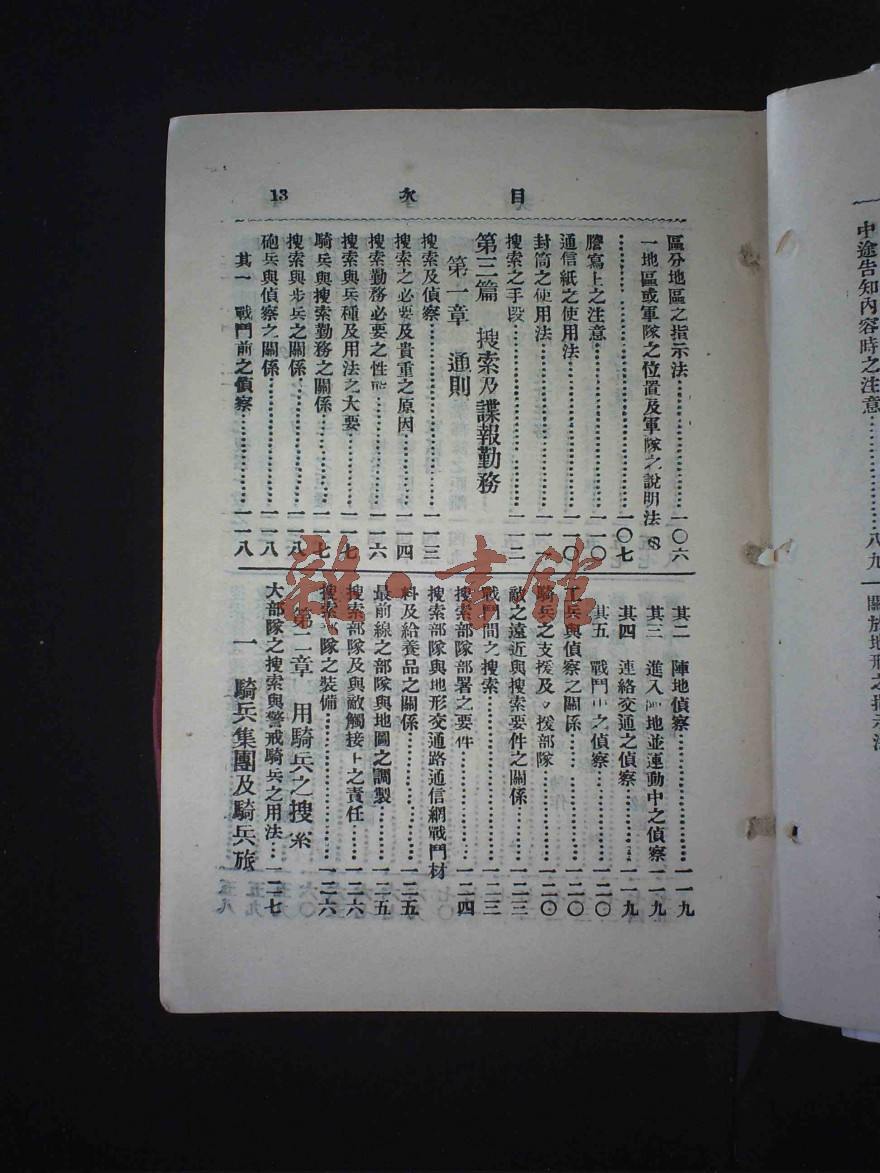 目次 13
區分地區之指示法……一〇六
一地區或軍隊之位置及軍隊之說明法
……一〇七
謄寫上之注意……一一〇
通信紙之使用法……一一〇
封筒之使用法……一一一
搜索之手段……一一二
第三篇 搜索及諜報勤務
第一章 通則
搜索及偵察……一一三
搜索之必要及貴重之原因……一一四
搜索勤務必要之性能……一一六
搜索與兵種及用法之大要……一一七
騎兵與搜索勤務之關係……一一七
搜索與步兵之關係……一一八
砲兵與偵察之關係……一一八
其一 戰鬥前之偵察……一一八
其二 陣地偵察……一一九
其三 進入陣地並運動中之偵察……一一九
其四 連絡交通之偵察……一一九
其五 戰鬥中之偵察……一二〇
工兵與偵察之關係……一二〇
騎兵之支援及援部隊……一二〇
敵之遠近與搜索要件之關係……一二三
戰鬥間之搜索……一二三
搜索部隊部署之要件……一二四
搜索部隊與地形交通路通信網戰鬥材
料及給養品之關係……一二五
最前線之部隊與地圖之調製……一二五
搜索部隊及與敵觸接上之責任……一二六
搜索部隊之裝備……一二六
第二章 用騎兵之搜索
大部隊之搜索與警戒騎兵之用法…一二七
一 騎兵集團及騎兵旅
中途告知內容時之注意……八九
雜·書館